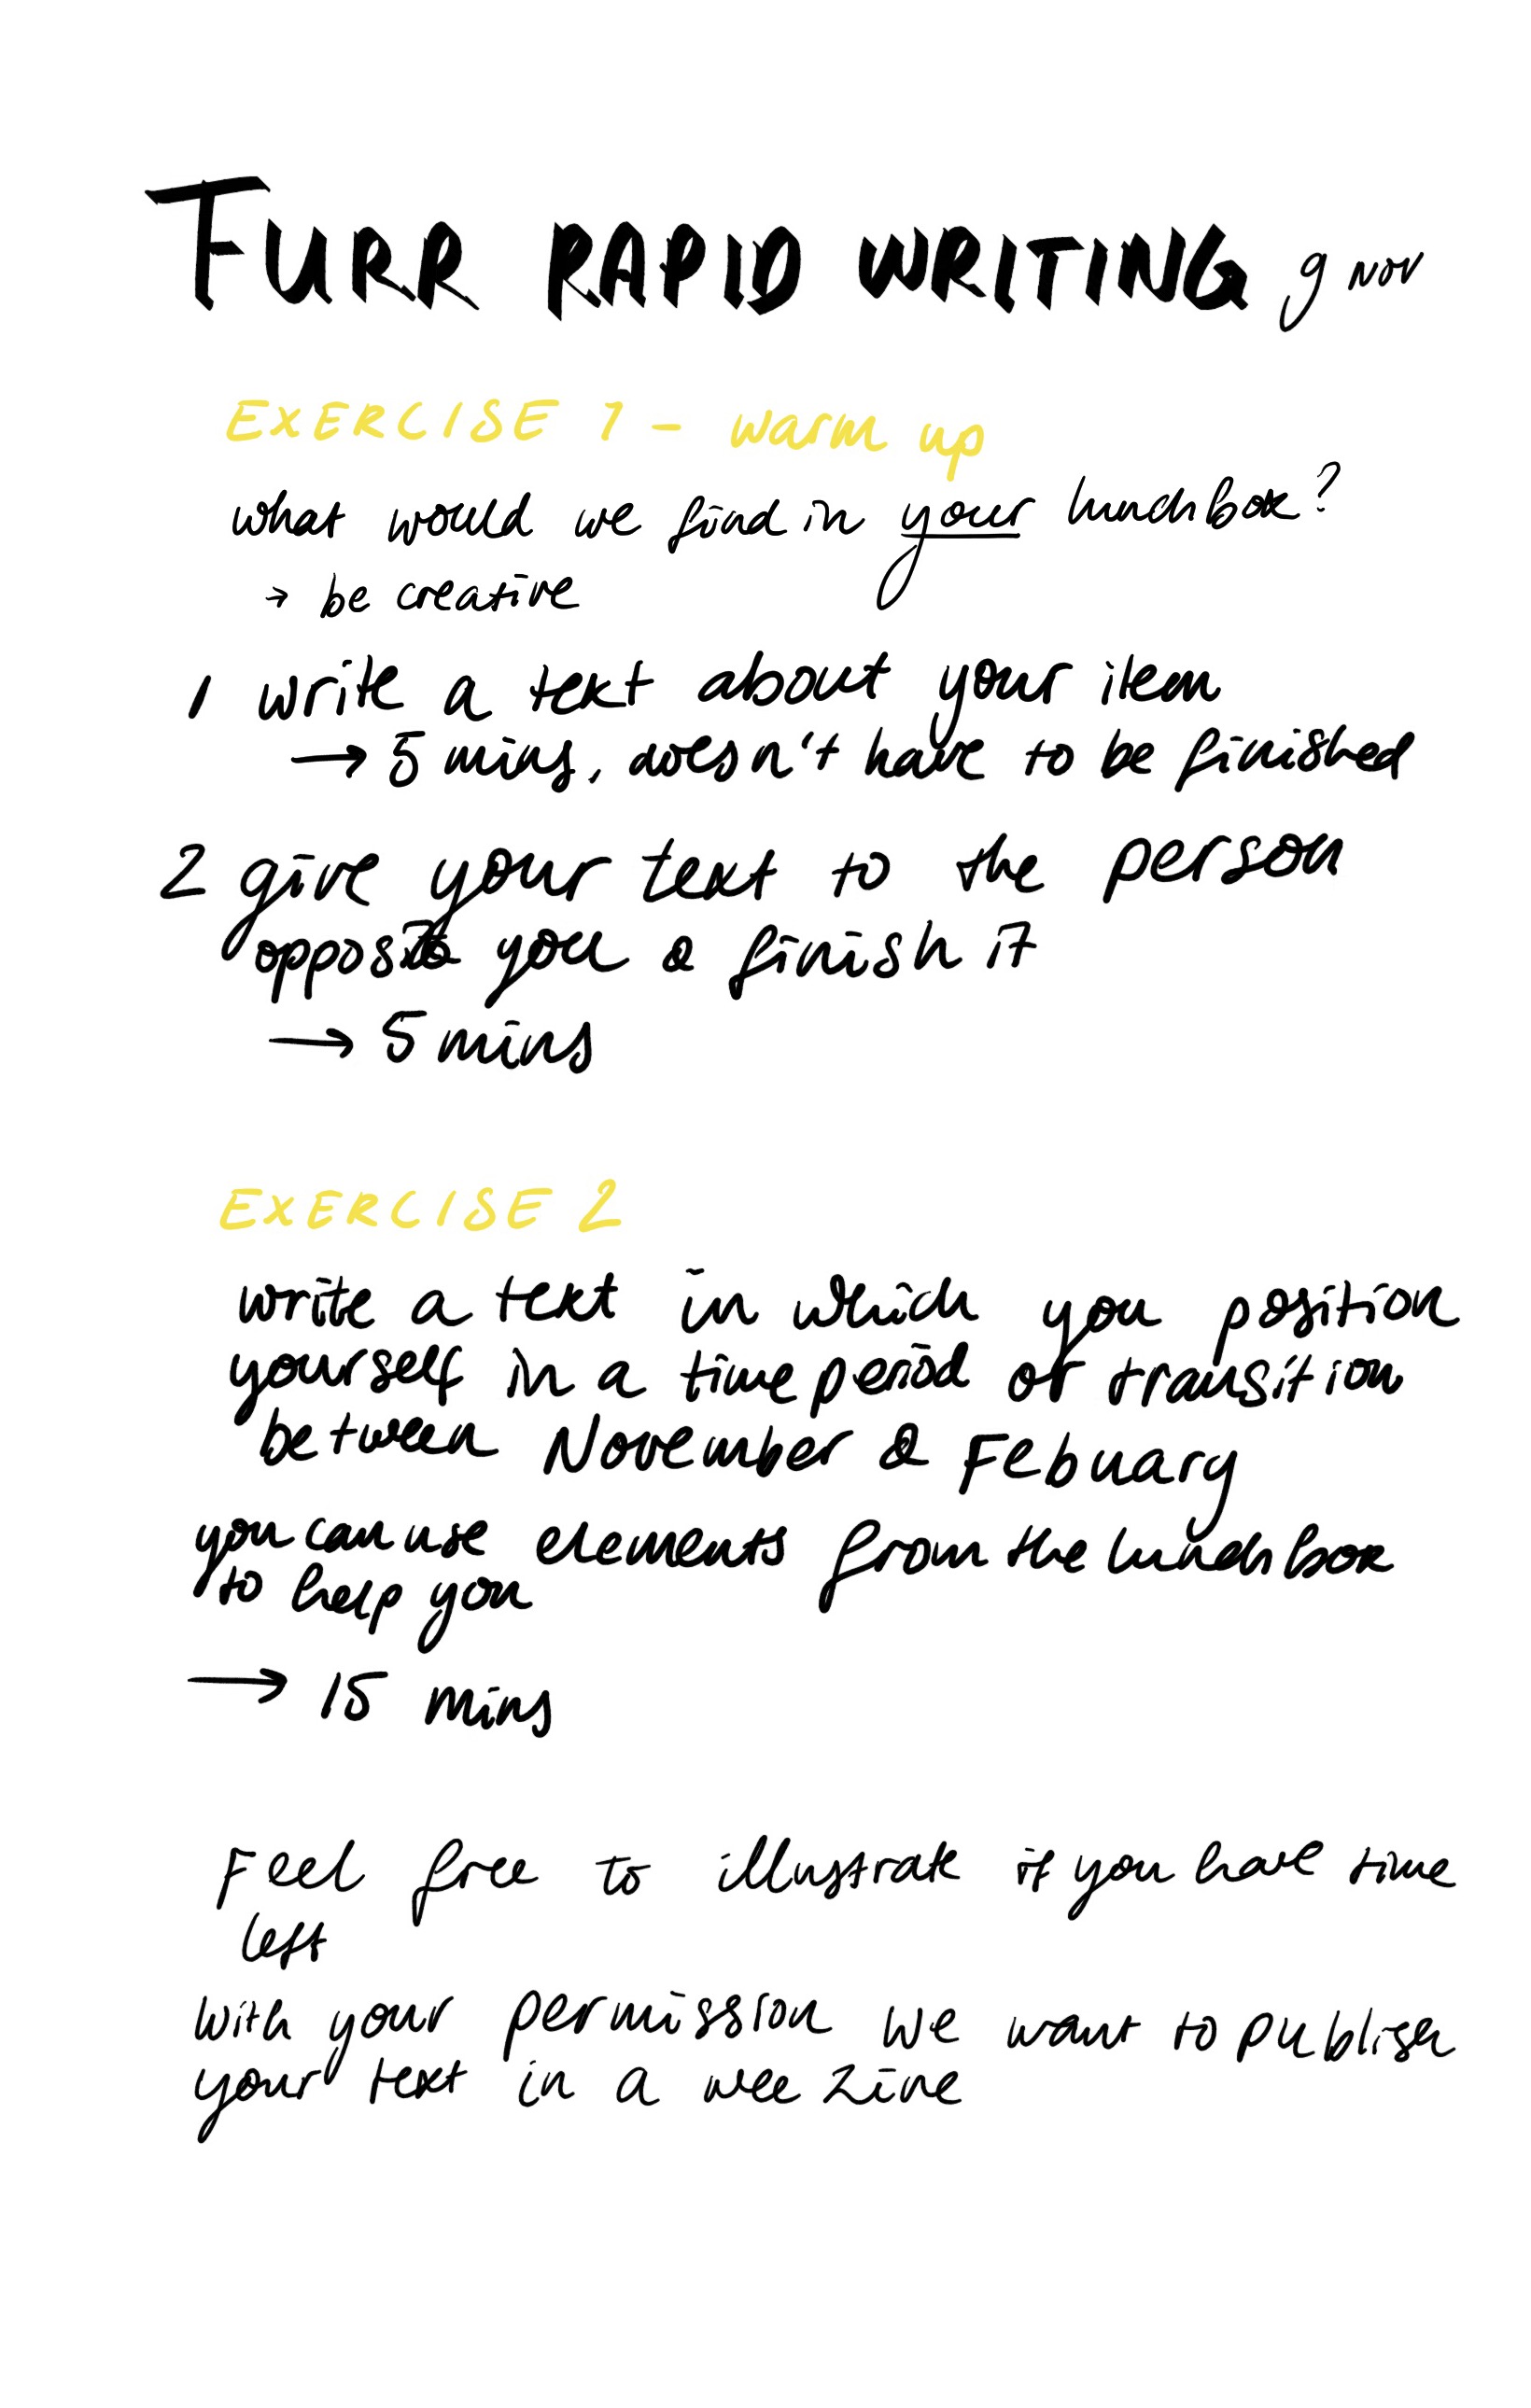 FURR RAPID WRITING 9 nov
EXERCISE 1 - warm up
what would we find in your lunchbox?
→ be creative
1 write a text about your item
→ 5 mins, doesn't have to be finished
2 give your text to the person
opposite you & finish it
→ 5 mins
EXERCISE 2
write a text in which you position
yourself in a time period of transition
between November & Febuary
you can use elements from the lunchbox
to help you
→ 15 mins
Feel free to illustrate if you have time
left
With your permission we want to publish
your text in a wee zine